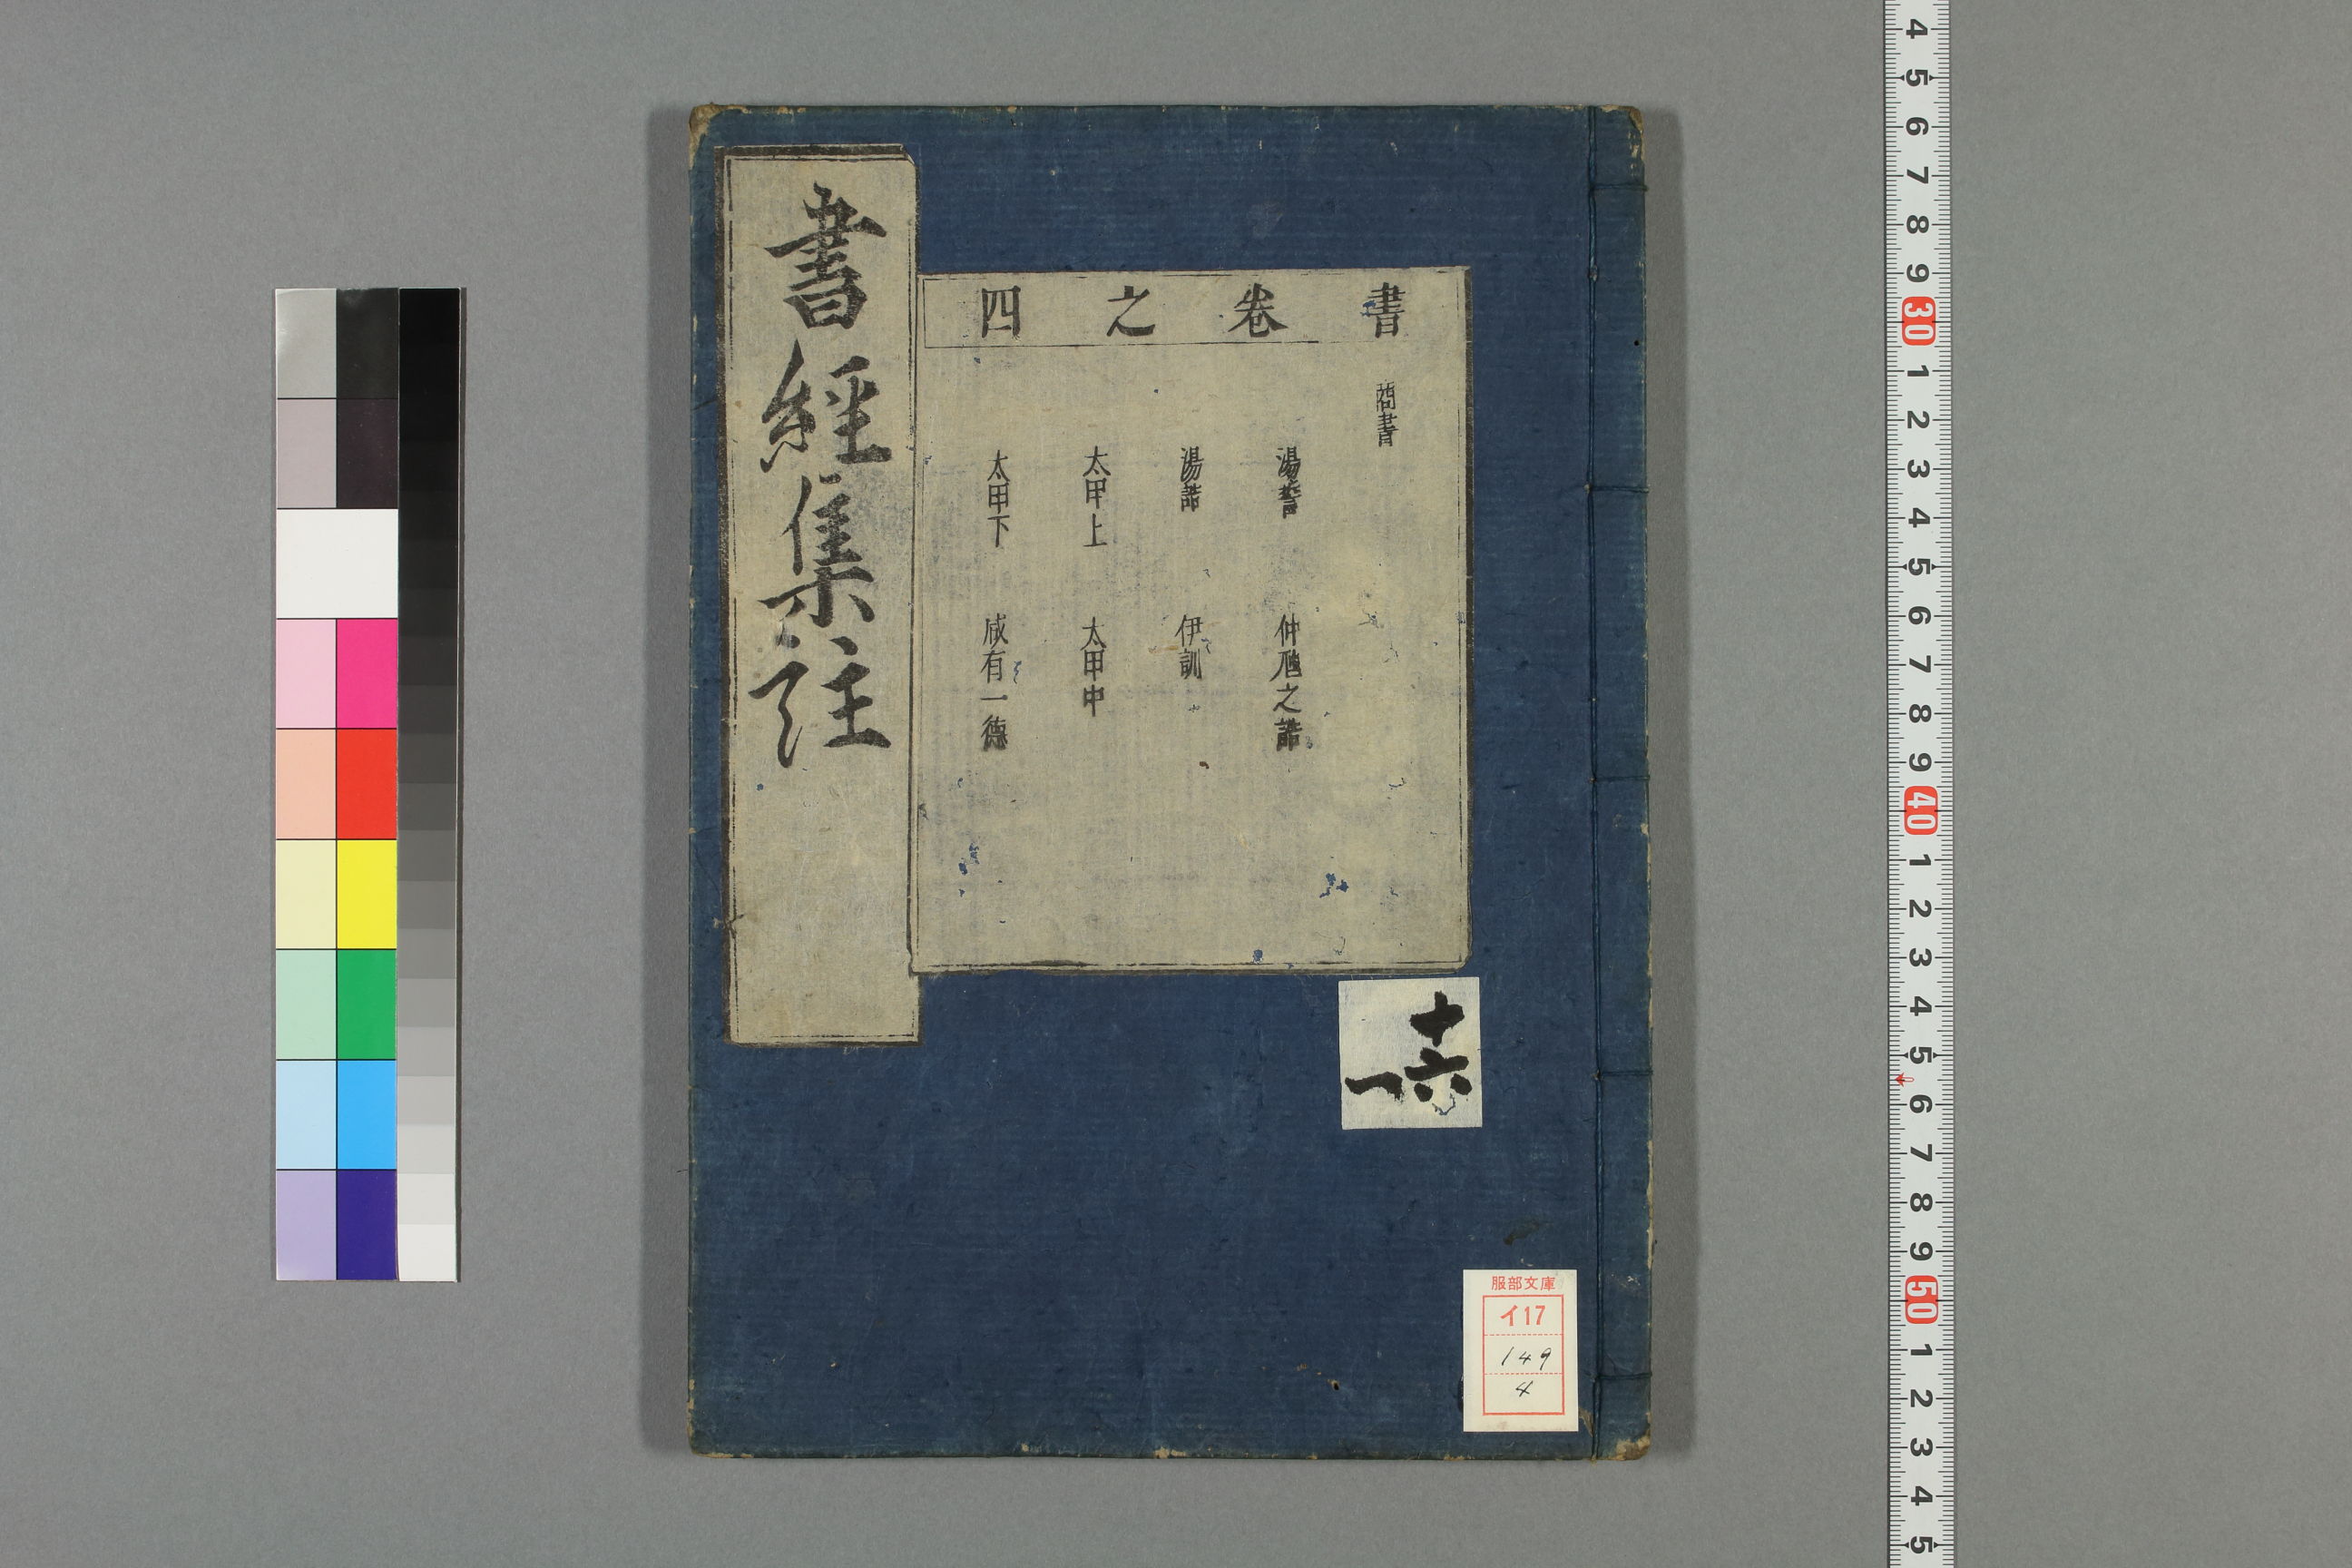 書經集註
書卷之四
商書
湯誓 仲虺之誥
湯誥 伊訓
太甲上 太甲中
太甲下 咸有一德
十六
一
服部文庫
イ17
149
4
4 5 6 7 8 9 30 1 2 3 4 5 6 7 8 9 40 1 2 3 4 5 6 7 8 9 50 1 2 3 4 5